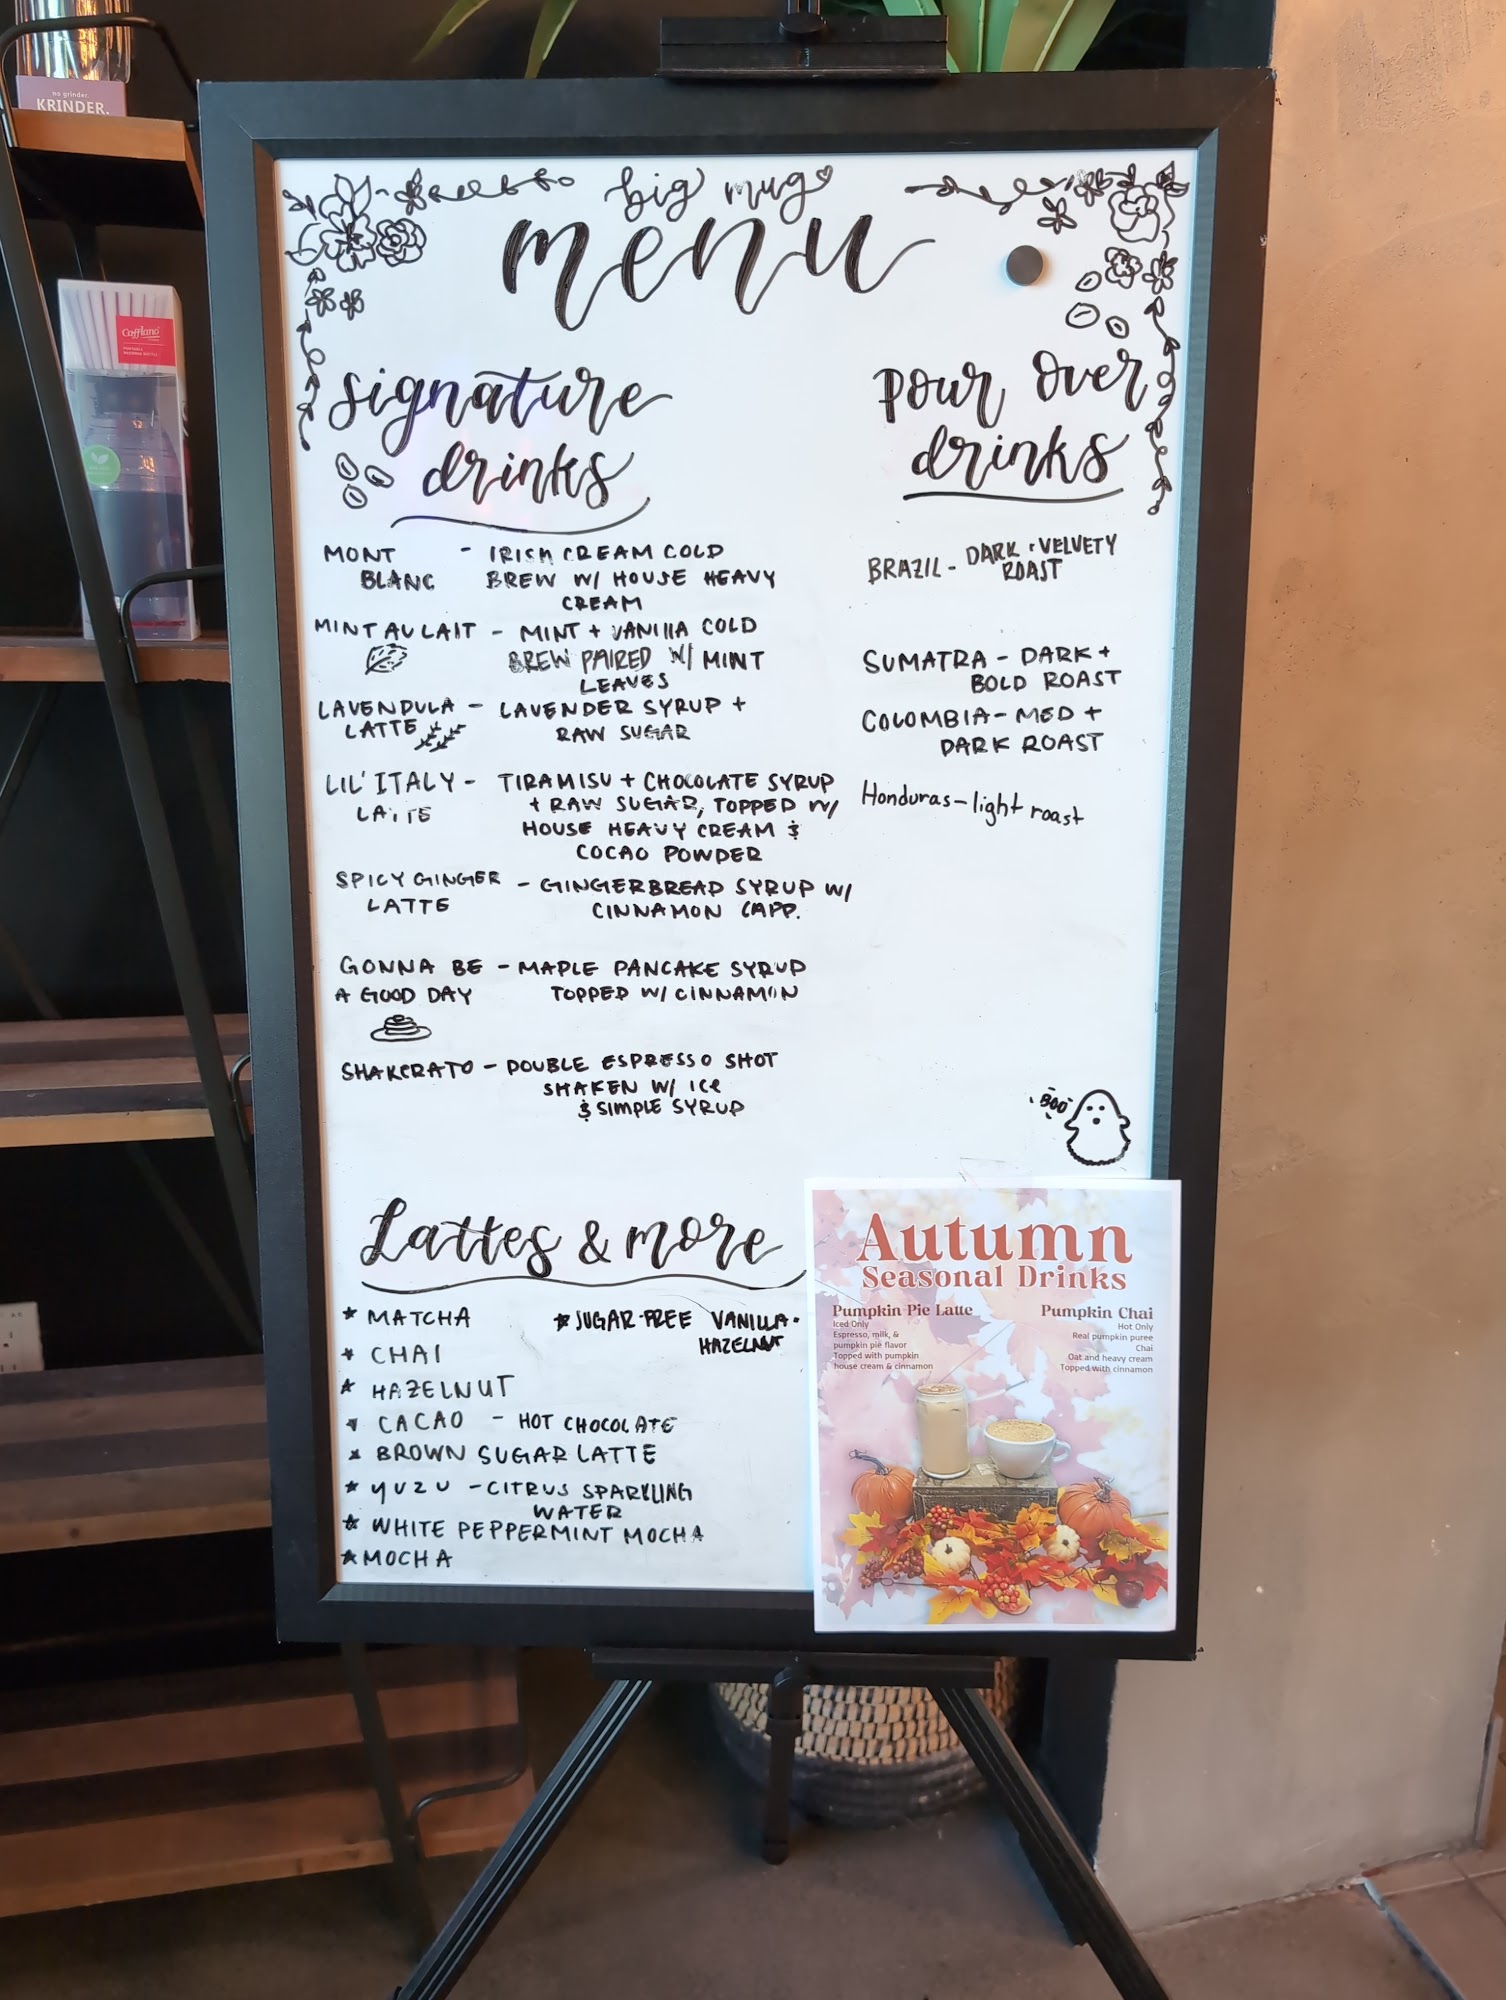 no grinder.
KRINDER.
Cafflano
big mug
menu
signature
drinks
MONT - IRISH CREAM COLD
BLANC BREW W/ HOUSE HEAVY
CREAM
MINT AU LAIT - MINT + VANILLA COLD
BREW PAIRED W/ MINT
LEAVES
LAVENDULA - LAVENDER SYRUP +
LATTE RAW SUGAR
LIL' ITALY - TIRAMISU + CHOCOLATE SYRUP
LATTE + RAW SUGAR, TOPPED W/
HOUSE HEAVY CREAM &
COCAO POWDER
SPICY GINGER - GINGERBREAD SYRUP W/
LATTE CINNAMON CAPP.
GONNA BE - MAPLE PANCAKE SYRUP
A GOOD DAY TOPPED W/ CINNAMON
SHAKERATO - DOUBLE ESPRESSO SHOT
SHAKEN W/ ICE
& SIMPLE SYRUP
pour over
drinks
BRAZIL - DARK + VELVETY
ROAST
SUMATRA - DARK +
BOLD ROAST
COLOMBIA - MED +
DARK ROAST
Honduras - light roast
BOO
Lattes & more
MATCHA
CHAI
HAZELNUT
CACAO - HOT CHOCOLATE
BROWN SUGAR LATTE
YUZU - CITRUS SPARKLING
WATER
WHITE PEPPERMINT MOCHA
MOCHA
SUGAR-FREE VANILLA ·
HAZELNUT
Autumn
Seasonal Drinks
Pumpkin Pie Latte
Iced Only
Espresso, milk, &
pumpkin pie flavor
Topped with pumpkin
house cream & cinnamon
Pumpkin Chai
Hot Only
Real pumpkin puree
Chai
Oat and heavy cream
Topped with cinnamon